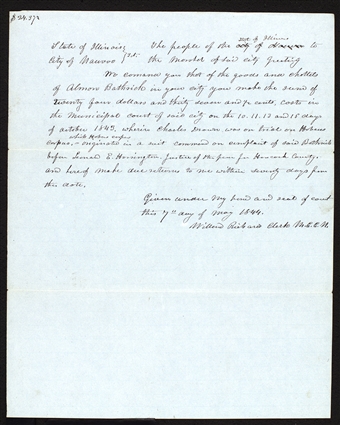 $24.37½
State of Illinois
City of Nauvoo } Sct. The people of the state of Illinois city of Nauvoo to
the Marshal of said city Greeting
We command you that of the goods and chattels
of Almon Bathrick in your city you make the sum of
Twenty four dollars and thirty seven and ½ cents, costs in
the Municipal court of said city on the 10. 11. 12 and 15 days
of October 1843, wherein Charles Drown was on trial on Habeas
which Habeas corpus
corpus, originated in a suit commenced on complaint of said Bathrick
before Daniel E. Harrington Justice of the peace for Hancock County.
and hereof make due returns to me within seventy days from
this date.
Given under my hand and seal of court
this 7th day of May 1844.
Willard Richards Clerk M.C.C.N.